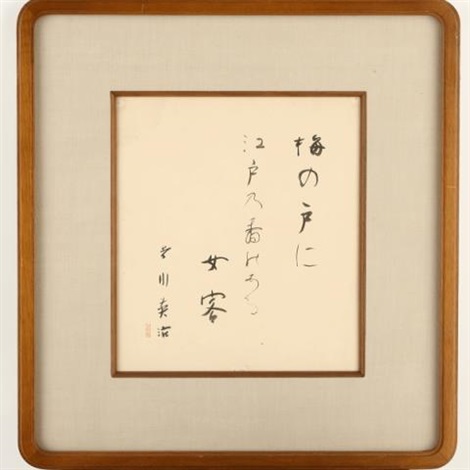 梅の戸に
江戸乃香のある
女客
吉川英治